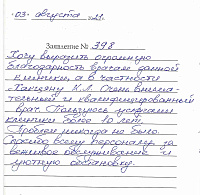 ·03· августа 21.
Заявление № 398
Хочу выразить огромную
благодарность врачам данной
клиники, а в частности
К.Л. Очень внима-
тельный и квалифицированный
врач. Пользуюсь услугами
клиники более 10 лет.
Проблем никогда не было.
Спасибо всему персоналу за
вежливое обслуживание и
уютную обстановку.